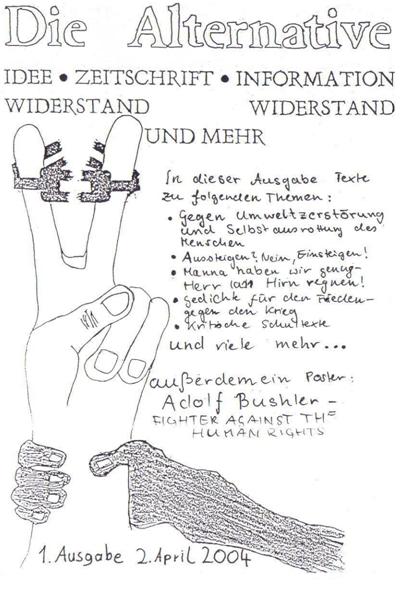 Die Alternative
IDEE • ZEITSCHRIFT • INFORMATION
WIDERSTAND WIDERSTAND
UND MEHR
In dieser Ausgabe Texte
zu folgenden Themen:
• Gegen Umweltzerstörung
und Selbstausrottung des
Menschen
• Aussteigen? Nein, Einsteigen!
• Manna haben wir genug-
Herr lass Hirn regnen!
• Gedichte für den Frieden-
gegen den Krieg
• Kritische Schultexte
und viele mehr...
außerdem ein Poster:
Adolf Bushler -
FIGHTER AGAINST THE
HUMAN RIGHTS
1. Ausgabe 2. April 2004